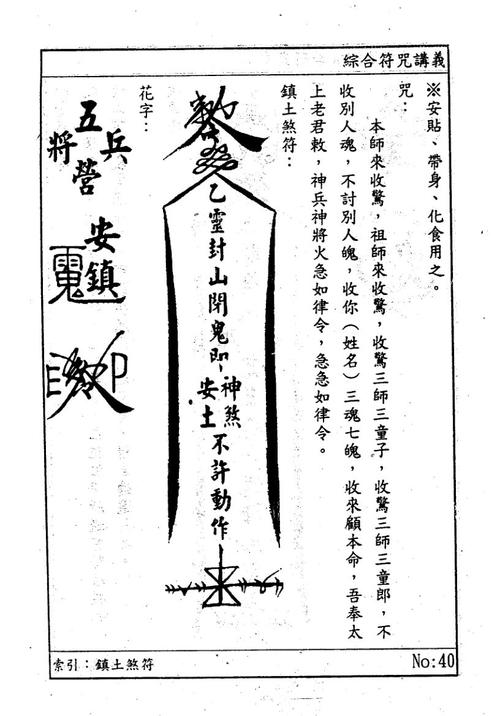 綜合符咒講義
※安貼、帶身、化食用之。
咒：
本師來收驚，祖師來收驚，收驚三師三童子，收驚三師三童郎，不
收別人魂，不討別人魄，收你（姓名）三魂七魄，收來顧本命，吾奉太
上老君敕，神兵神將火急如律令，急急如律令。
鎮土煞符：
敕令
乙靈封山閉鬼卽
神煞
安土
不許動作
花字：
五
兵
將
營
安
鎮
索引：鎮土煞符
No:40